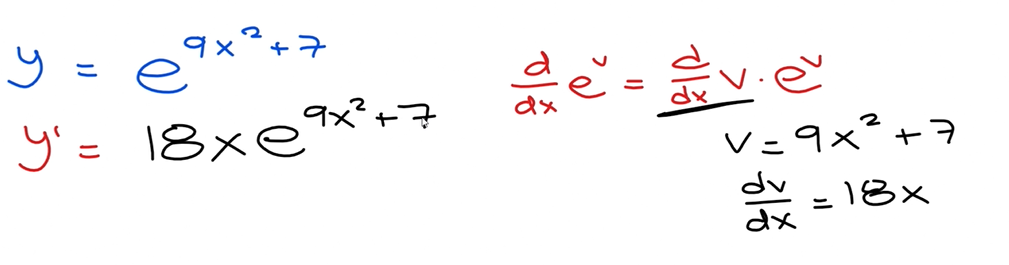 y = e^{9x^2+7}
y' = 18xe^{9x^2+7}
d/dx e^v = d/dx v · e^v
v = 9x^2 + 7
dv/dx = 18x